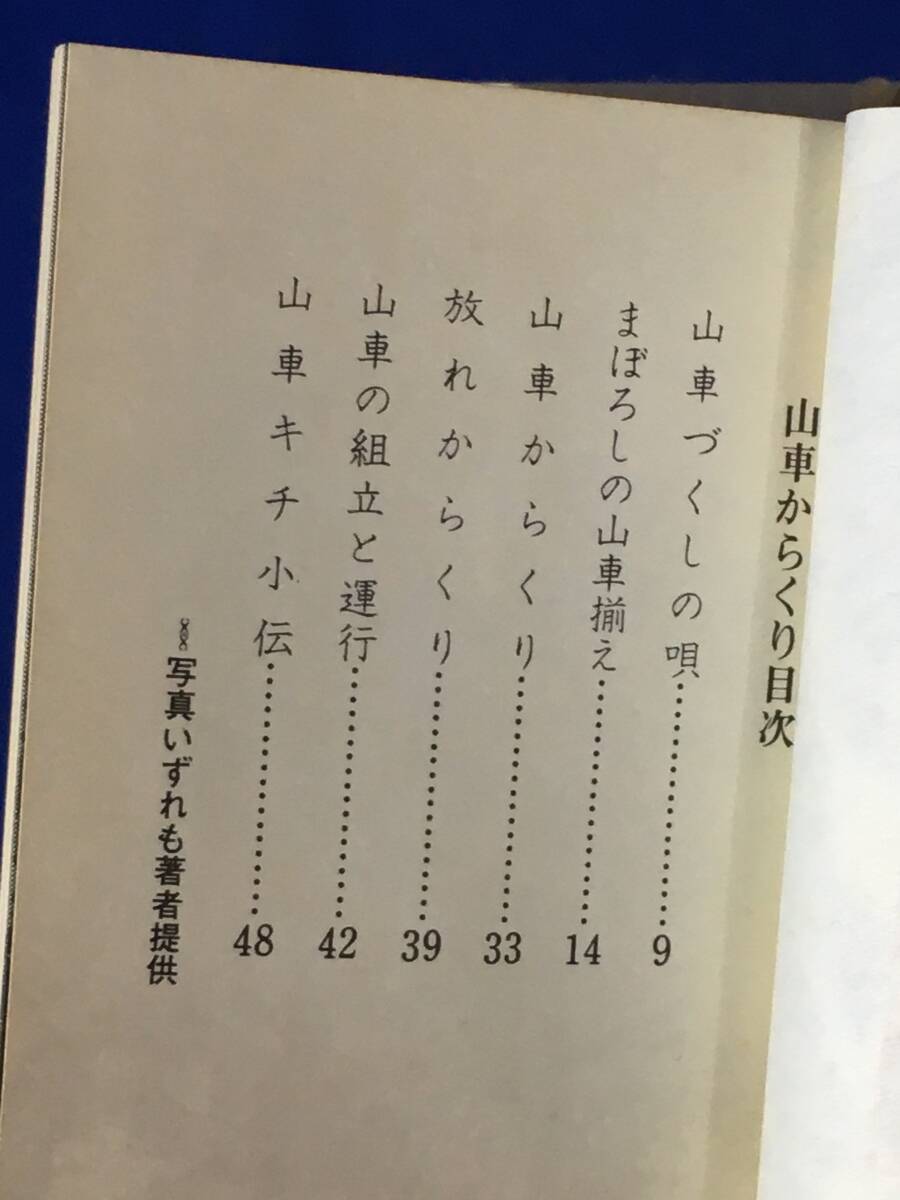 山車からくり目次
山車づくしの唄……………………9
まぼろしの山車揃え……………………14
山車からくり……………………33
放れからくり……………………39
山車の組立と運行……………………42
山車キチ小伝……………………48
写真いずれも著者提供